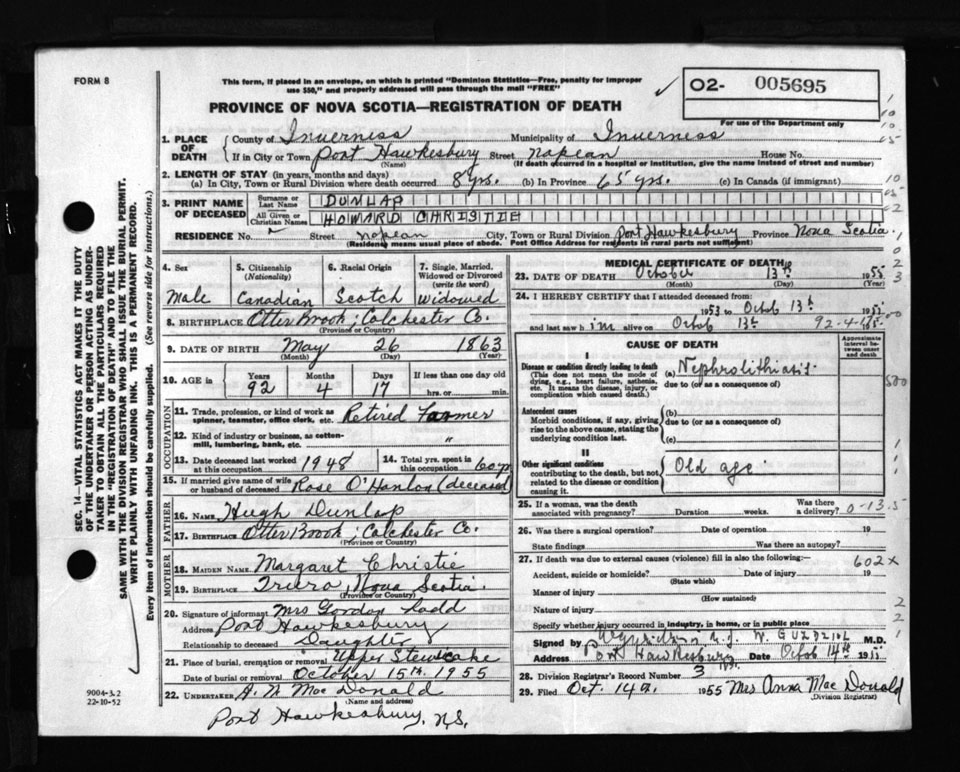 FORM 8
This form, if placed in an envelope, on which is printed "Dominion Statistics—Free, penalty for improper
use $50," and properly addressed will pass through the mail "FREE"
✓ O2- 005695
For use of the Department only
PROVINCE OF NOVA SCOTIA—REGISTRATION OF DEATH
1. PLACE OF DEATH
County of Inverness Municipality of Inverness
If in City or Town Port Hawkesbury Street Napean House No.
(Name) (If death occurred in a hospital or institution, give the name instead of street and number)
2. LENGTH OF STAY (in years, months and days)
(a) In City, Town or Rural Division where death occurred 8 yrs. (b) In Province 65 yrs. (c) In Canada (if immigrant)
3. PRINT NAME OF DECEASED
Surname or Last Name DUNLAP
All Given or Christian Names HOWARD CHRISTIE
RESIDENCE No. Street Napean City, Town or Rural Division Port Hawkesbury Province Nova Scotia
(Residence means usual place of abode. Post Office Address for residents in rural parts not sufficient)
4. Sex
Male
5. Citizenship
(Nationality)
Canadian
6. Racial Origin
Scotch
7. Single, Married, Widowed or Divorced
(write the word)
Widowed
8. BIRTHPLACE Otter Brook; Colchester Co.
(Province or Country)
9. DATE OF BIRTH May 26 1863
(Month) (Day) (Year)
10. AGE in
Years Months Days If less than one day old
92 4 17 hrs. or min.
OCCUPATION
11. Trade, profession, or kind of work as
spinner, teamster, office clerk, etc. Retired Farmer
12. Kind of industry or business, as cotton-
mill, lumbering, bank, etc. "
13. Date deceased last worked
at this occupation 1948
14. Total yrs. spent in
this occupation 60 yr
15. If married give name of wife
or husband of deceased Rose O'Hanlon (deceased)
FATHER
16. NAME Hugh Dunlap
17. BIRTHPLACE Otter Brook; Colchester Co.
(Province or Country)
MOTHER
18. MAIDEN NAME Margaret Christie
19. BIRTHPLACE Truro, Nova Scotia.
(Province or Country)
20. Signature of informant Mrs Gordon Ladd
Address Port Hawkesbury
Relationship to deceased Daughter
21. Place of burial, cremation or removal Upper Stewiacke
Date of burial or removal October 15th, 1955
22. UNDERTAKER A. M. MacDonald
(Name and address)
Port Hawkesbury, N.S.
MEDICAL CERTIFICATE OF DEATH
23. DATE OF DEATH October 13th 1955
(Month) (Day) (Year)
24. I HEREBY CERTIFY that I attended deceased from:
1953 to Octob 13th 1955
and last saw h im alive on Octob 13th 1955
92-4-17
CAUSE OF DEATH
Approximate interval between onset and death
I
Disease or condition directly leading to death
(This does not mean the mode of dying, e.g., heart failure, asthenia, etc. It means the disease, injury, or complication which caused death.)
(a) Nephrolithiasis.
due to (or as a consequence of)
Antecedent causes
Morbid conditions, if any, giving rise to the above cause, stating the underlying condition last.
(b)
due to (or as a consequence of)
(c)
II
Other significant conditions
contributing to the death, but not related to the disease or condition causing it.
Old age
25. If a woman, was the death
associated with pregnancy? Duration weeks. Was there a delivery?
0-13.5
26. Was there a surgical operation? Date of operation 19
State findings Was there an autopsy?
27. If death was due to external causes (violence) fill in also the following:—
602x
Accident, suicide or homicide? Date of injury 19
(State which)
Manner of injury
(How sustained)
Nature of injury
Specify whether injury occurred in industry, in home, or in public place
Signed by M.D.
Address Port Hawkesbury Date Octob 14th 1955
28. Division Registrar's Record Number 3
29. Filed Oct. 14 1955 Mrs Anna MacDonald
(Division Registrar)
SEC. 14—VITAL STATISTICS ACT MAKES IT THE DUTY
OF THE UNDERTAKER OR PERSON ACTING AS UNDER-
TAKER TO OBTAIN ALL THE PARTICULARS REQUIRED
IN THE "REGISTRATION OF DEATH" AND TO FILE THE
SAME WITH THE DIVISION REGISTRAR WHO SHALL ISSUE THE BURIAL PERMIT.
WRITE PLAINLY WITH UNFADING INK. THIS IS A PERMANENT RECORD.
Every item of information should be carefully supplied. (See reverse side for instructions.)
9004-3.2
22-10-52